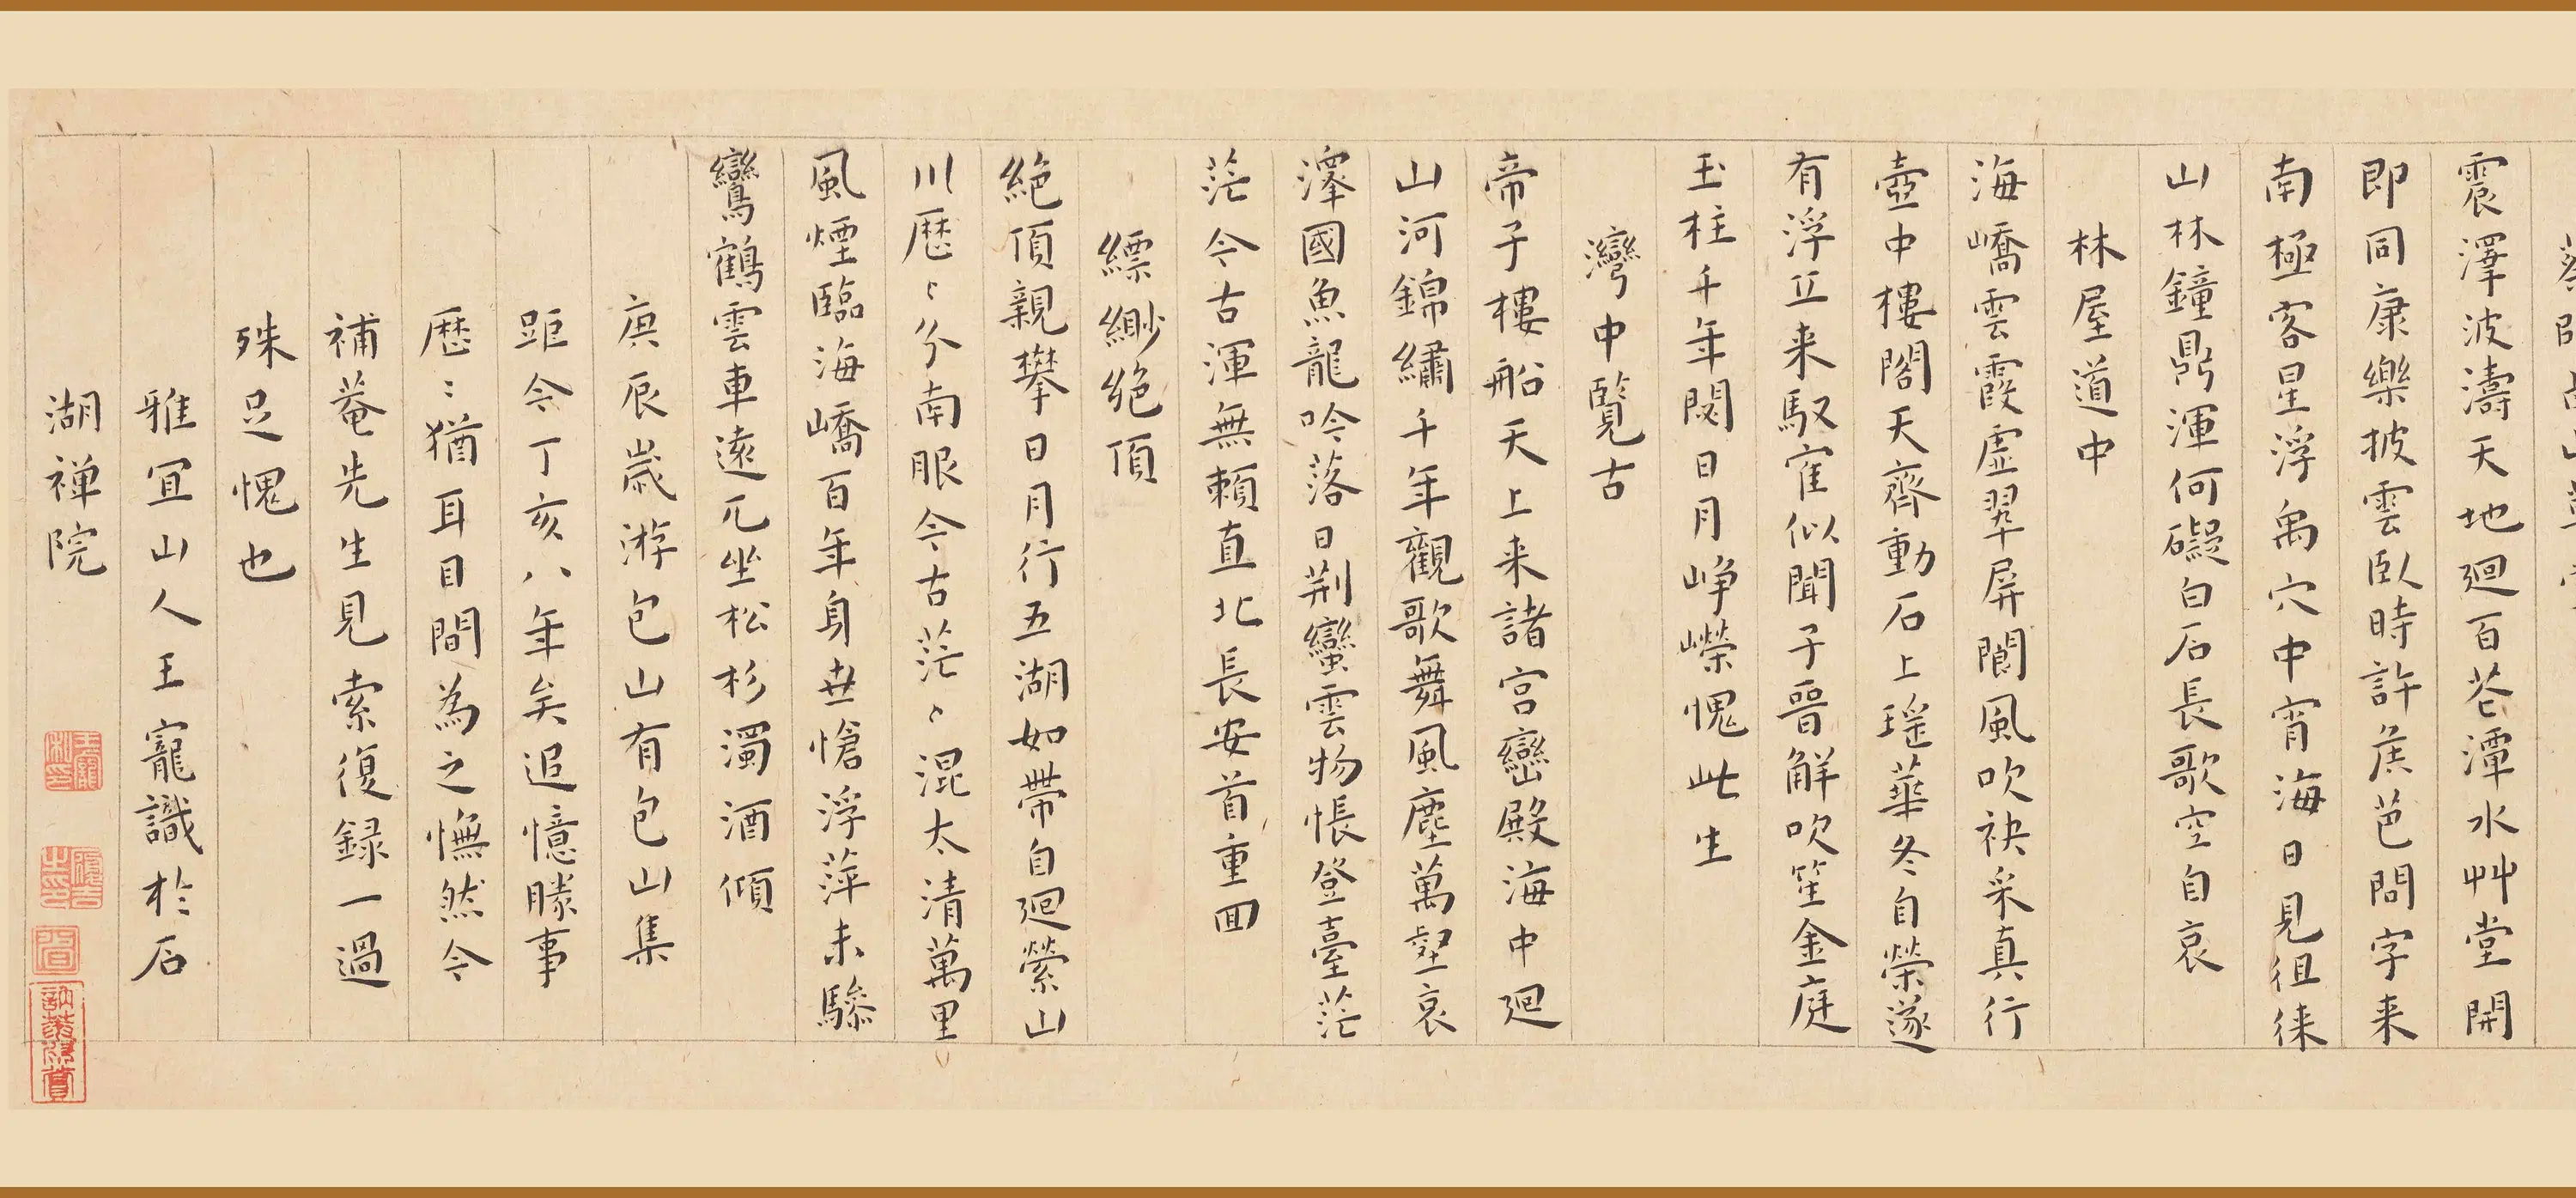 震澤波濤天地迴百花潭水艸堂開
即同康樂披雲臥時許侯芭問字来
南極客星浮禹穴中宵海日見徂徕
山林鐘鼎渾何礙白石長歌空自哀
林屋道中
海嶠雲霞虚翠屏閬風吹袂采真行
壺中樓閣天齊動石上瑤華冬自榮遂
有浮丘来馭寉似聞子晉解吹笙金庭
玉柱千年閟日月峥嶸愧此生
灣中覽古
帝子樓船天上来諸宫巒殿海中迴
山河錦繡千年觀歌舞風塵萬壑哀
澤國魚龍吟落日荆蠻雲物悵登臺茫
茫今古渾無賴直北長安首重回
縹緲絶頂
絶頂親攀日月行五湖如帶自迴縈山
川歷〻分南眼今古茫〻混太清萬里
風煙臨海嶠百年身世愴浮萍未驂
鸞鶴雲車遠兀坐松杉濁酒傾
庚辰嵗游包山有包山集
距今丁亥八年矣追憶勝事
歷〻猶耳目間為之憮然今
補菴先生見索復録一過
殊足愧也
雅宜山人王寵識於石
湖禅院